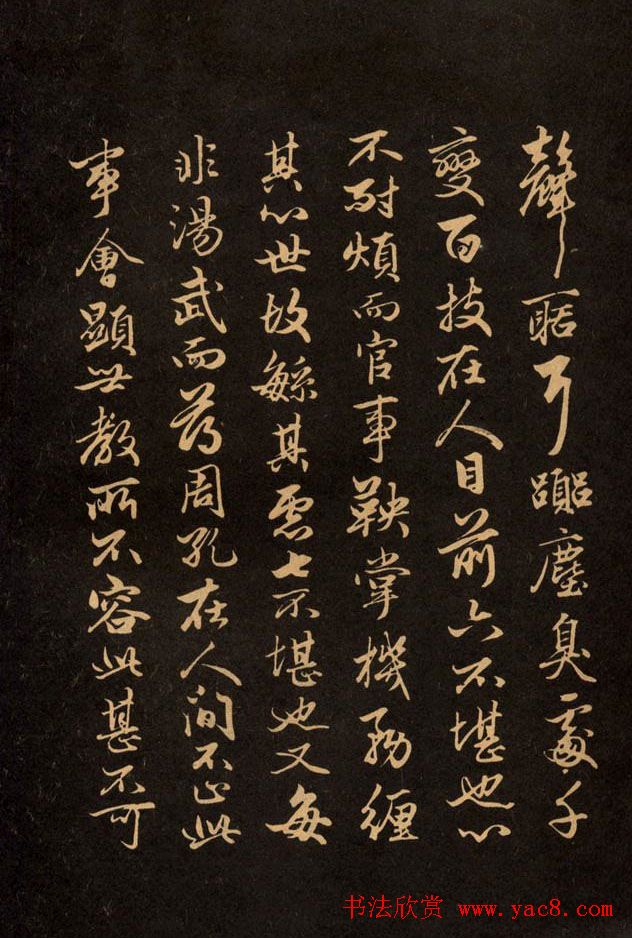 聲聒耳囂塵臭處千
變百技在人目前六不堪也心
不耐煩而官事鞅掌機務纏
其心世故緐其慮七不堪也又每
非湯武而薄周孔在人間不止此
事會顯世教所不容此甚不可
书法欣赏 www.yac8.com